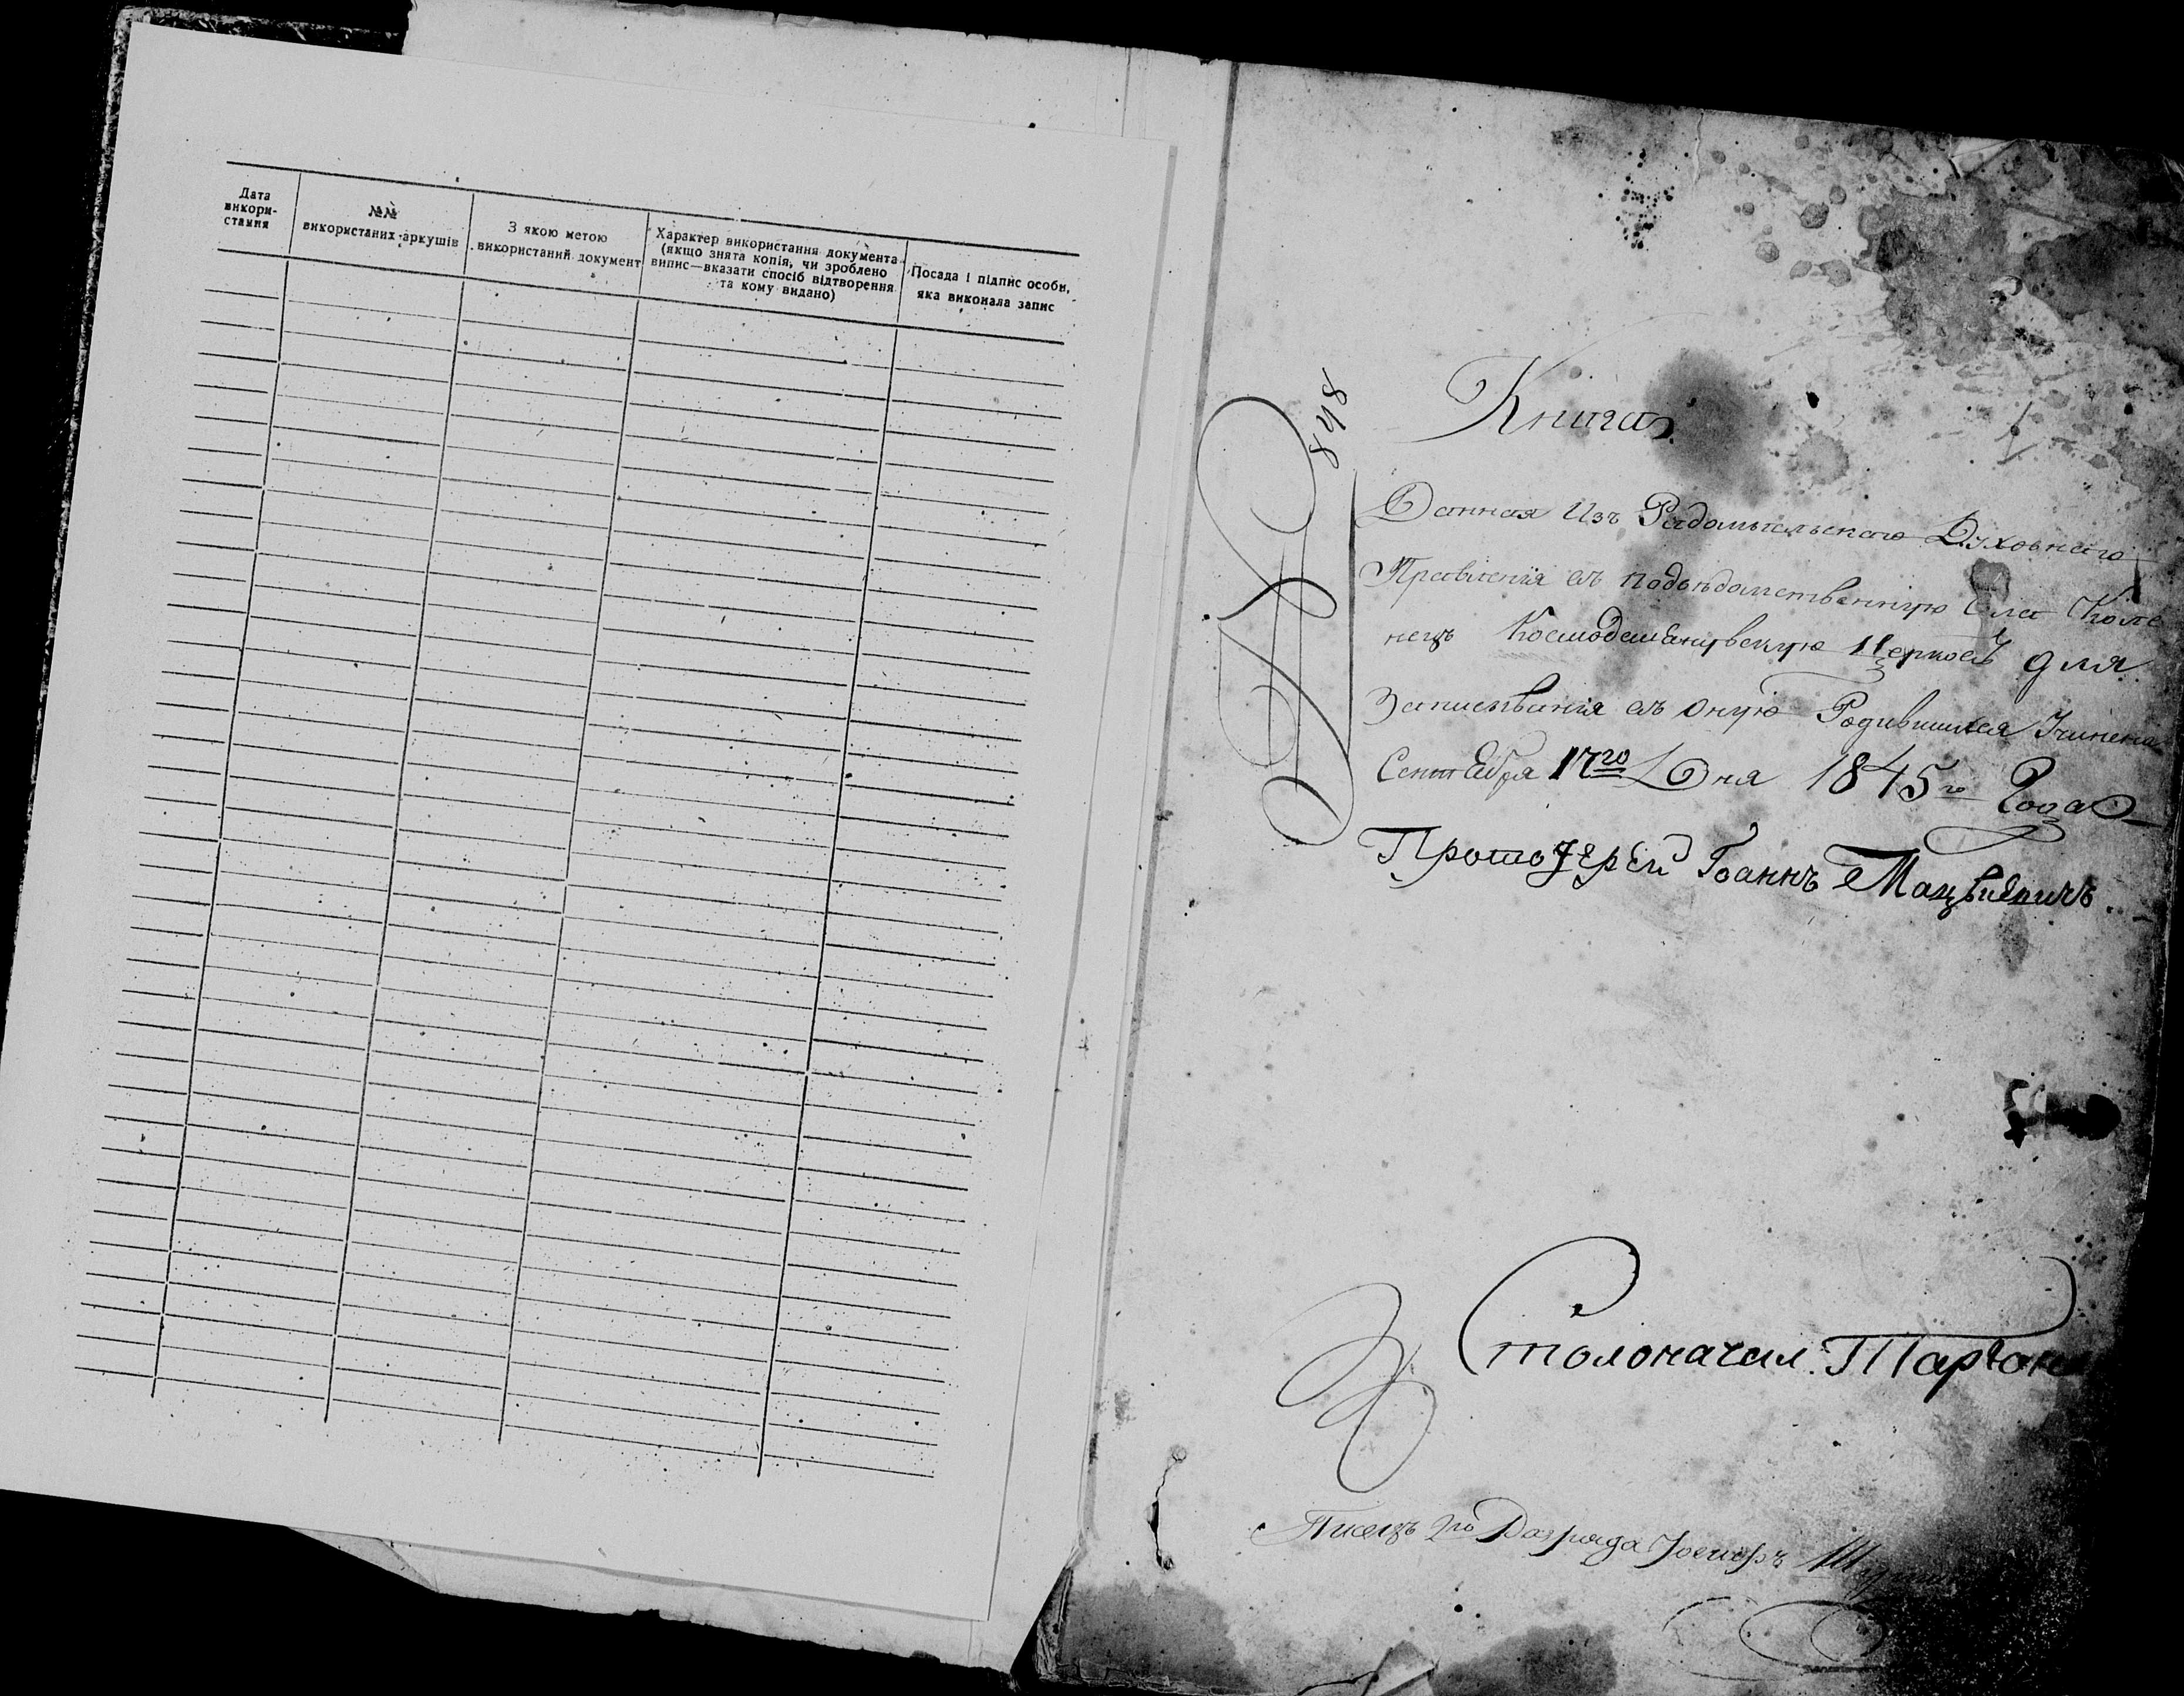 Дата
викори-
стання
№№
використаних аркушів
З якою метою
використаний документ
Характер використання документа
(якщо знята копія, чи зроблено
випис—вказати спосіб відтворення
та кому видано)
Посада і підпис особи,
яка виконала запис
848
Книга
Данная Изъ Радомысльскаго Духовнаго
Правленія въ подвѣдомственную Села Коле
нецъ Космодаміановскую Церковь для
Записыванія въ оную Родившихся Учинена
Сентября 17го Дня 1845го Года
Протоіерей Іоаннъ Мацѣвичъ
Столоначал.
Писецъ 2го Разряда Іосифъ